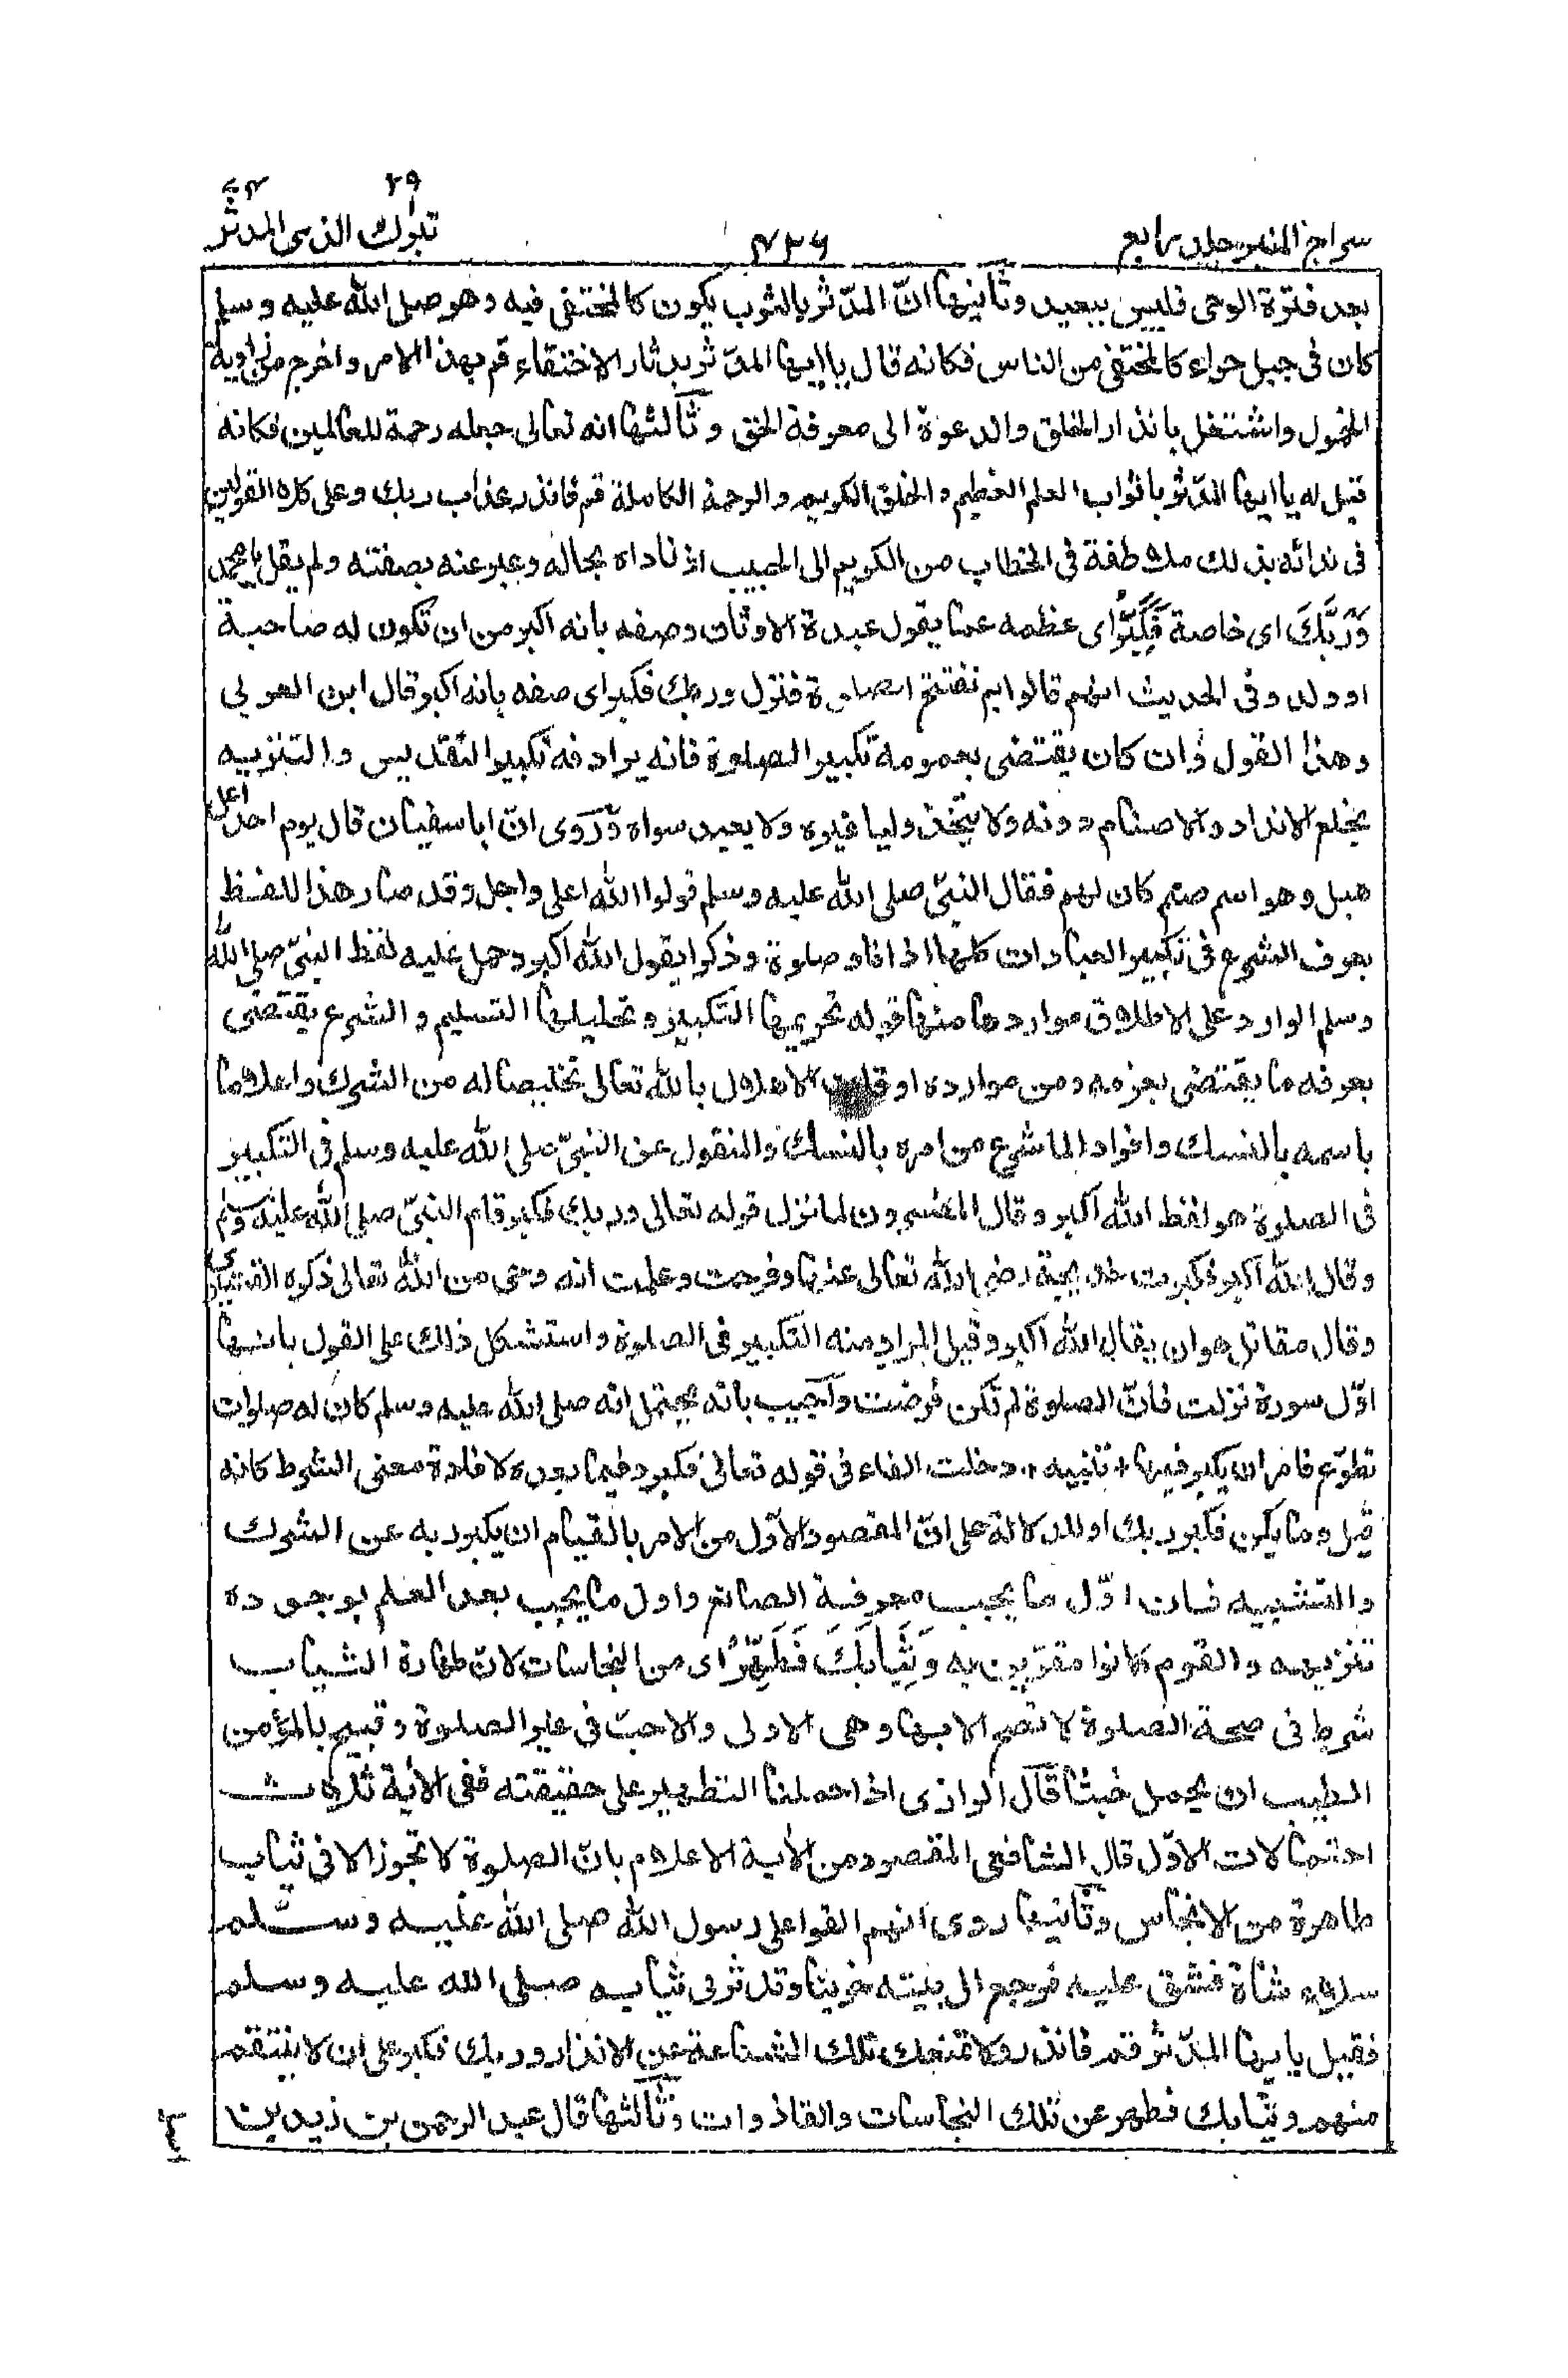 سراج المنير جلد رابع
٤٣٦
تبٰرك الذى المدثر
٢٩
٧٤
بعد فترة الوحى فليس ببعيد وثانيها انّ المدّثر بالثوب يكون كالمختفى فيه وهو صلى الله عليه وسلم
كان فى جبل حراء كالمختفى من الناس فكانه قال ياايها المدّثر بدثار الاختفاء قم بهذا الامر واخرج من زاوية
الخمول واشتغل بانذار الخلق والدعوة الى معرفة الحق وثالثها انه تعالى جعله رحمة للعالمين فكانه
قيل له ياايها المدّثر باثواب العلم العظيم والخلق الكريم والرحمة الكاملة قم فانذر عذاب ربك وعلى كلا القولين
فى ندائه بذلك ملاطفة فى الخطاب من الكريم الى الحبيب اذ ناداه بحاله وعبر عنه بصفته ولم يقل يا محمد
وَرَبَّكَ اى خاصة فَكَبِّرْ اى عظمه عما يقول عبدة الاوثان وصفه بانه اكبر من ان تكون له صاحبة
او ولد وفى الحديث انهم قالوا بم نفتتح الصلوة فنزل وربك فكبر اى صفه بانه اكبر قال ابن العربي
وهذا القول وان كان يقتضى بعمومه تكبير الصلوة فانه يراد فه تكبير التقديس والتنزيه
بخلع الانداد والاصنام دونه ولا يتخذ وليا غيره ولا يعبد سواه وروى انّ ابا سفيان قال يوم احد اعل
هبل وهو اسم صنم كان لهم فقال النبىّ صلى الله عليه وسلم قولوا الله اعلى واجل وقد صار هذا اللفظ
بعرف الشرع فى تكبير العبادات كلها اذانا وصلوة وذكرا بقول الله اكبر وحمل عليه لفظ النبىّ صلى الله
وسلم الوارد على الاطلاق مواردها منها قوله تحريمها التكبير وتحليلها التسليم والشرع يقتضى
بعرفه ما يقتضى بعزمه ومن موارده اوقات الاهلال بالله تعالى تخليصا له من الشرك واعلاما
باسمه بالنسك وافرادا لما شرع من امره بالنسك والمنقول عن النبىّ صلى الله عليه وسلم فى التكبير
فى الصلوة هو لفظ الله اكبر وقال المفسرون لما نزل قوله تعالى وربك فكبر قام النبىّ صلى الله عليه وسلم
وقال الله اكبر فكبرت خديجة رضى الله تعالى عنها وفرحت وعلمت انه وحى من الله تعالى ذكره القشيرى
وقال مقاتل هو ان يقال الله اكبر وقيل المراد منه التكبير فى الصلوة واستشكل ذلك على القول بانها
اوّل سورة نزلت فانّ الصلوة لم تكن فرضت واجيب بانه يحتمل انه صلى الله عليه وسلم كان له صلوات
تطوّع فامر ان يكبر فيها * تنبيه * دخلت الفاء فى قوله تعالى فكبر وفيما بعده لافادة معنى الشرط كانه
قيل وما يكن فكبر ربك او للدلالة على انّ المقصود الاوّل من الامر بالقيام ان يكبر ربه عن الشرك
والتشبيه فان اوّل ما يجب معرفة الصانع واول ما يجب بعد العلم بوجوده
تنزيهه والقوم كانوا مقرّين به وَثِيَابَكَ فَطَهِّرْ اى من النجاسات لانّ طهارة الثياب
شرط فى صحة الصلوة لا تصح الا بها وهى الاولى والاحبّ فى غير الصلوة وقبيح بالمؤمن
الطيب ان يحمل خبثا قال الرازى اذا حملنا التطهير على حقيقته ففى الاية ثلاث
احتمالات الاوّل قال الشافعى المقصود من الاية الاعلام بانّ الصلوة لا تجوز الا فى ثياب
طاهرة من الانجاس وثانيها روى انهم القوا على رسول الله صلى الله عليه وسلم
سلاء شاة فشق عليه فرجع الى بيته حزينا وتدثر فى ثيابه صلى الله عليه وسلم
فقيل يا ايها المدّثر قم فانذر ولا تمنعك تلك الشناعة عن الانذار وربك فكبر على ان لا ينتقم
منهم وثيابك فطهر عن تلك النجاسات والقاذورات وثالثها قال عبد الرحمن بن زيد بن